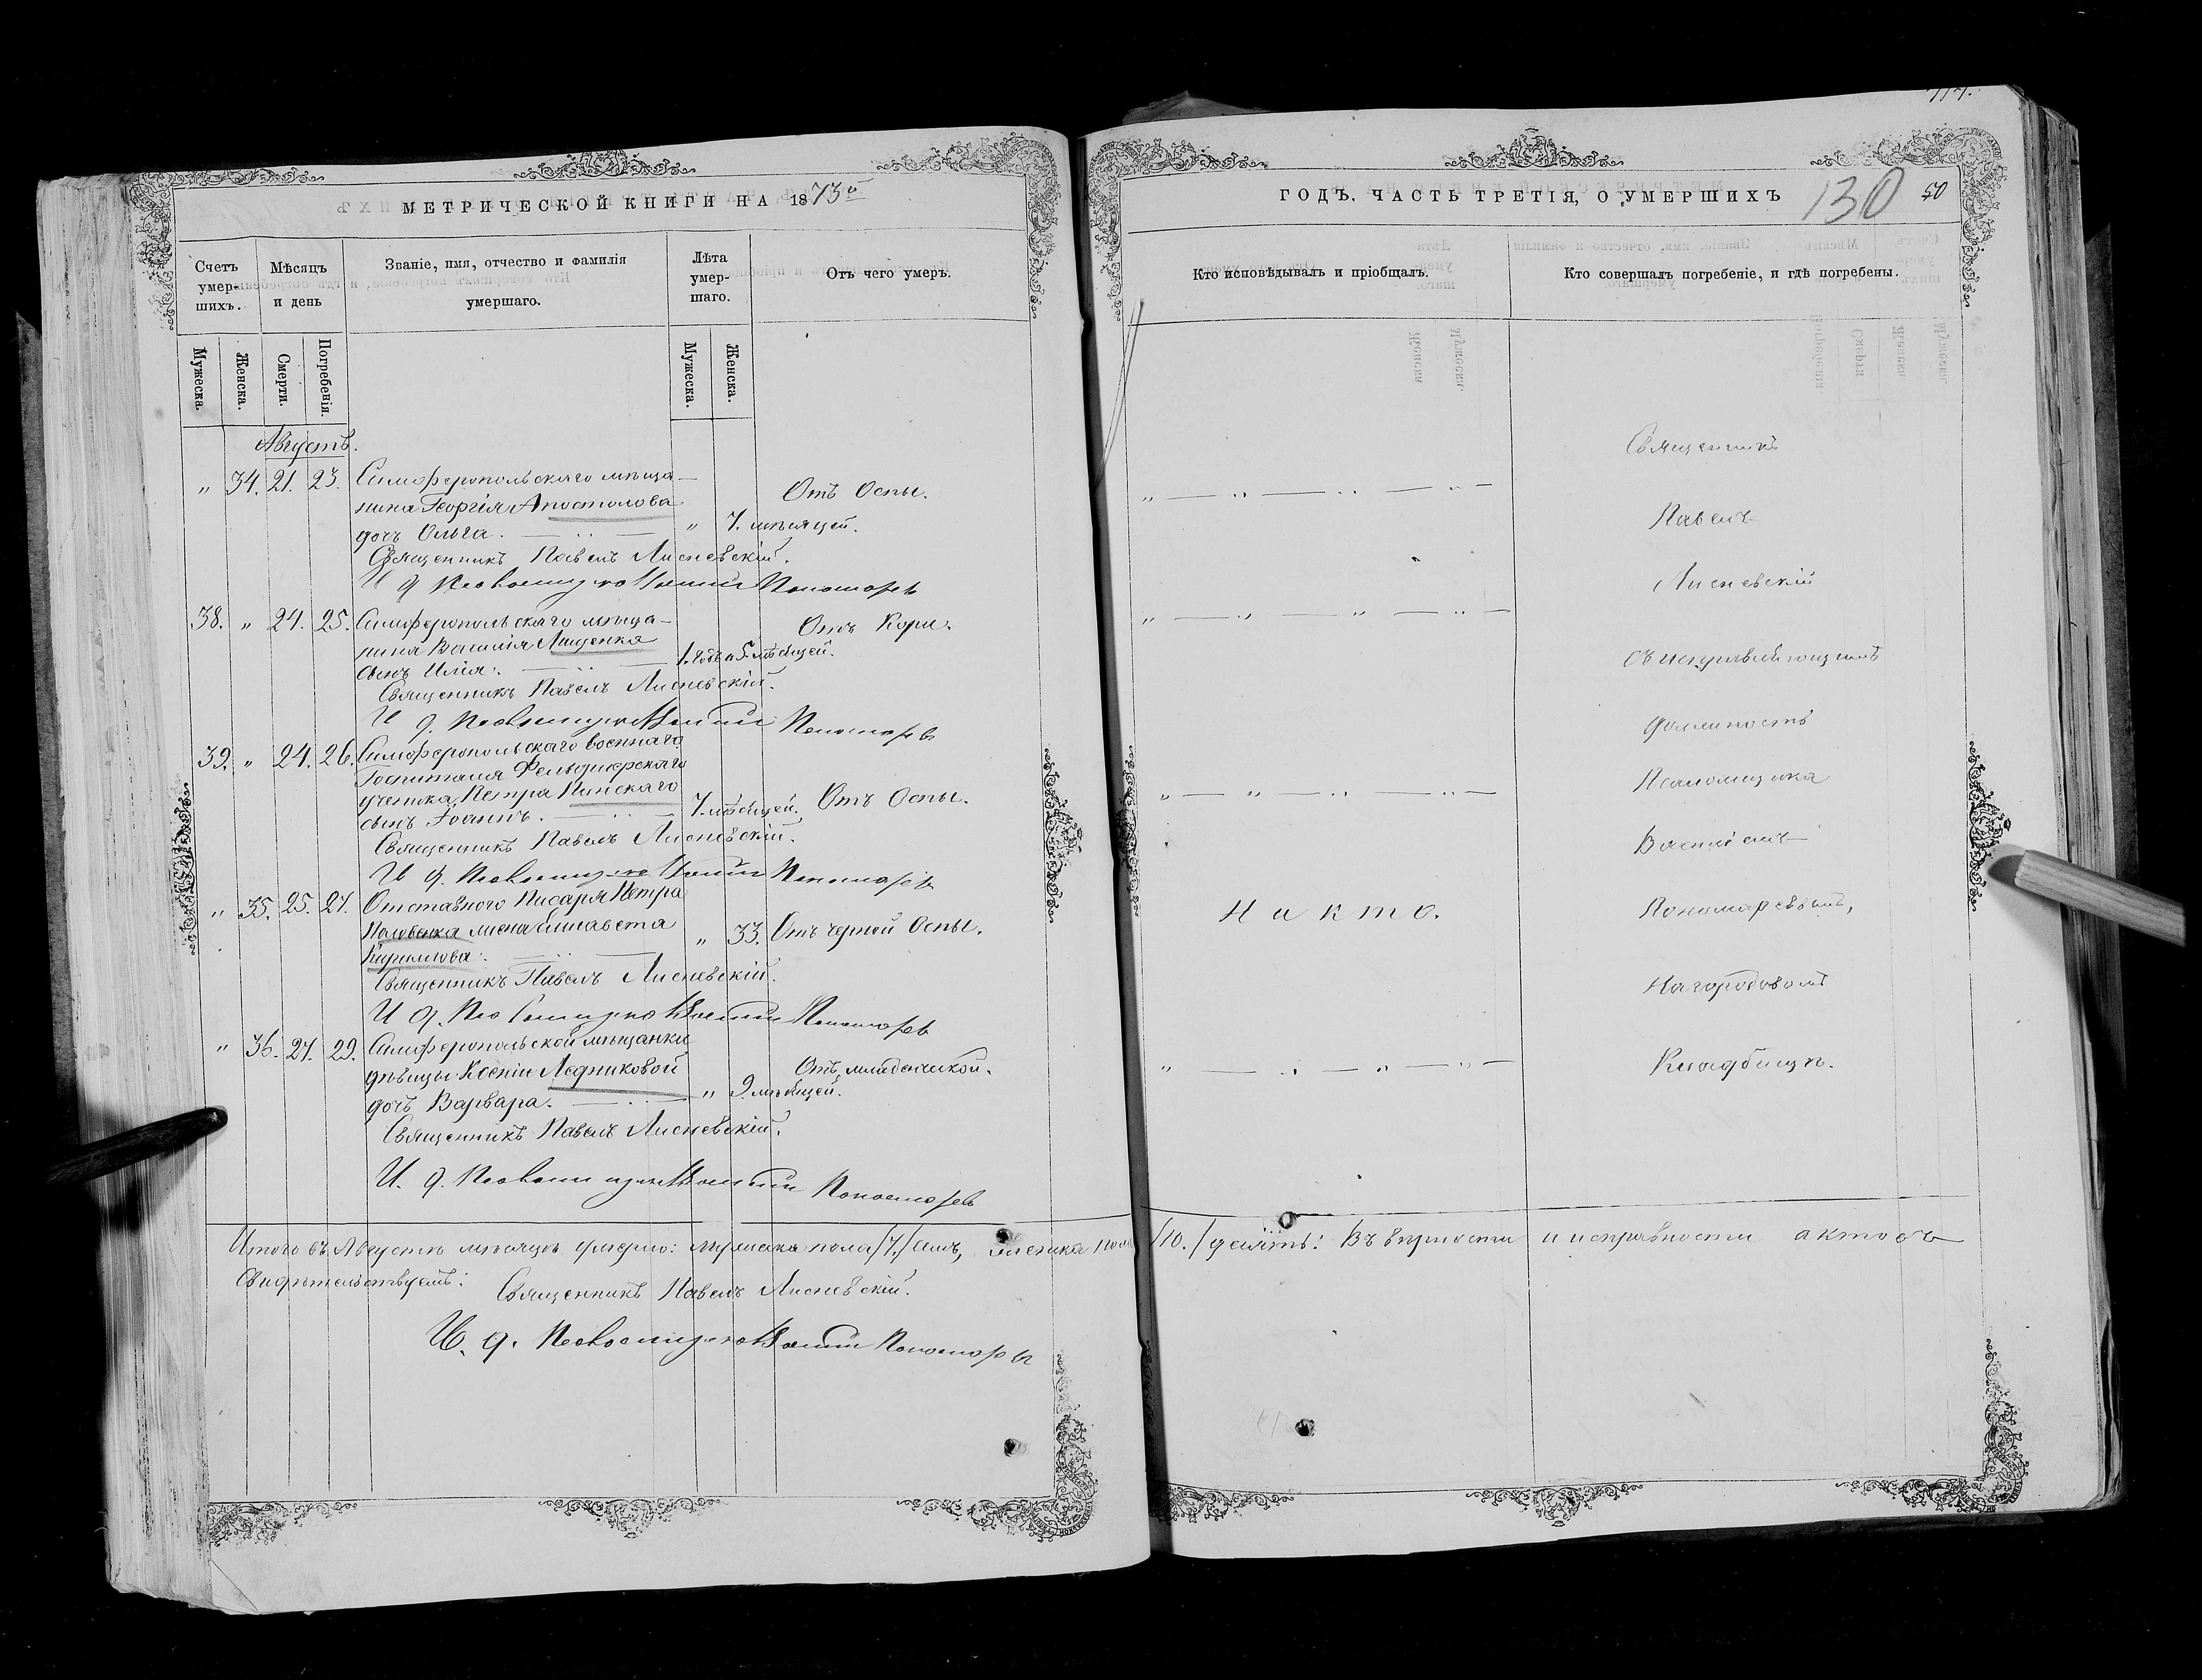 МЕТРИЧЕСКОЙ КНИГИ НА 1873й
Счетъ умер- шихъ.
Мѣсяцъ и день
Званіе, имя, отчество и фамилія
умершаго.
Лѣта умер- шаго.
Отъ чего умеръ.
Мужеска.
Женска.
Смерти.
Погребенія.
Мужеска.
Женска.
Августъ.
" 34. 21. 23. Симферопольскаго мѣща-
нина Георгія Апостолова
дочь Ольга. " 7. мѣсяцей. Отъ Оспы.
Священникъ Павелъ Лисневскій.
И д. Псаломщика Василій Пономаревъ
38. " 24. 25. Симферопольскаго мѣща-
нина Василія Лященка
сынъ Илія. 1. годъ и 5. мѣсяцей. Отъ Кори.
Священникъ Павелъ Лисневскій.
И д. Псаломщика Василій Пономаревъ
39. " 24. 26. Симферопольскаго военнаго
Госпиталя Фельдшерскаго
ученика, Петра
сынъ Іоаннъ. 7. мѣсяцей. Отъ Оспы.
Священникъ Павелъ Лисневскій.
И д. Псаломщика Василій Пономаревъ
" 35. 25. 27. Отставного Писаря Петра
жена Елисавета
Кирилова. " 33. Отъ черной Оспы.
Священникъ Павелъ Лисневскій.
И д. Псаломщика Василій Пономаревъ
" 36. 27. 29. Симферопольской мѣщанки
дѣвицы Ксеніи Ледниковой
дочь Варвара. " 9. мѣсяцей. Отъ младенческой.
Священникъ Павелъ Лисневскій.
И. д. Псаломщика Василій Пономаревъ
Итого въ Августѣ мѣсяцѣ умерло: мужеска пола /7./ семь, женска пола
Свидѣтельствуемъ:
Священникъ Павелъ Лисневскій.
И. д. Псаломщика Василій Пономаревъ
ГОДЪ, ЧАСТЬ ТРЕТІЯ, О УМЕРШИХЪ
130
50
Кто исповѣдывалъ и пріобщалъ.
Кто совершалъ погребеніе, и гдѣ погребены.
Священникъ
Павелъ
Лисневскій
съ исправляющимъ
должность
Псаломщика
Василіемъ
Никто.
Пономаревымъ,
На городовомъ
Кладбищѣ.
/10./ десять: Въ вѣрности и исправности актовъ